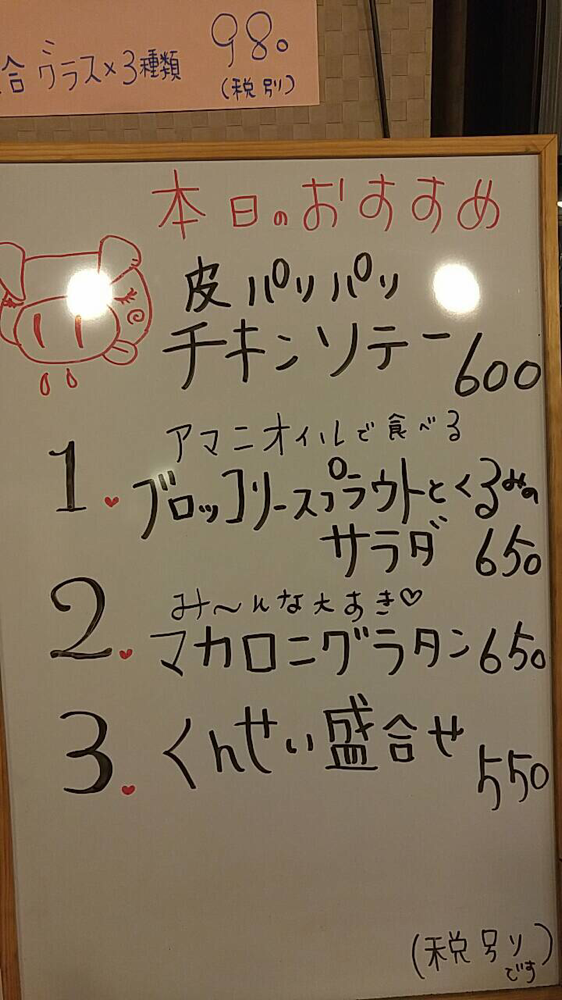 合 グラス×3種類 980
(税別)
本日のおすすめ
皮パリパリ
チキンソテー 600
1. アマニオイルで食べる
ブロッコリースプラウトとくるみの
サラダ 650
2. み〜んな大あき♡
マカロニグラタン 650
3. くんせい盛合せ 550
(税別りです)